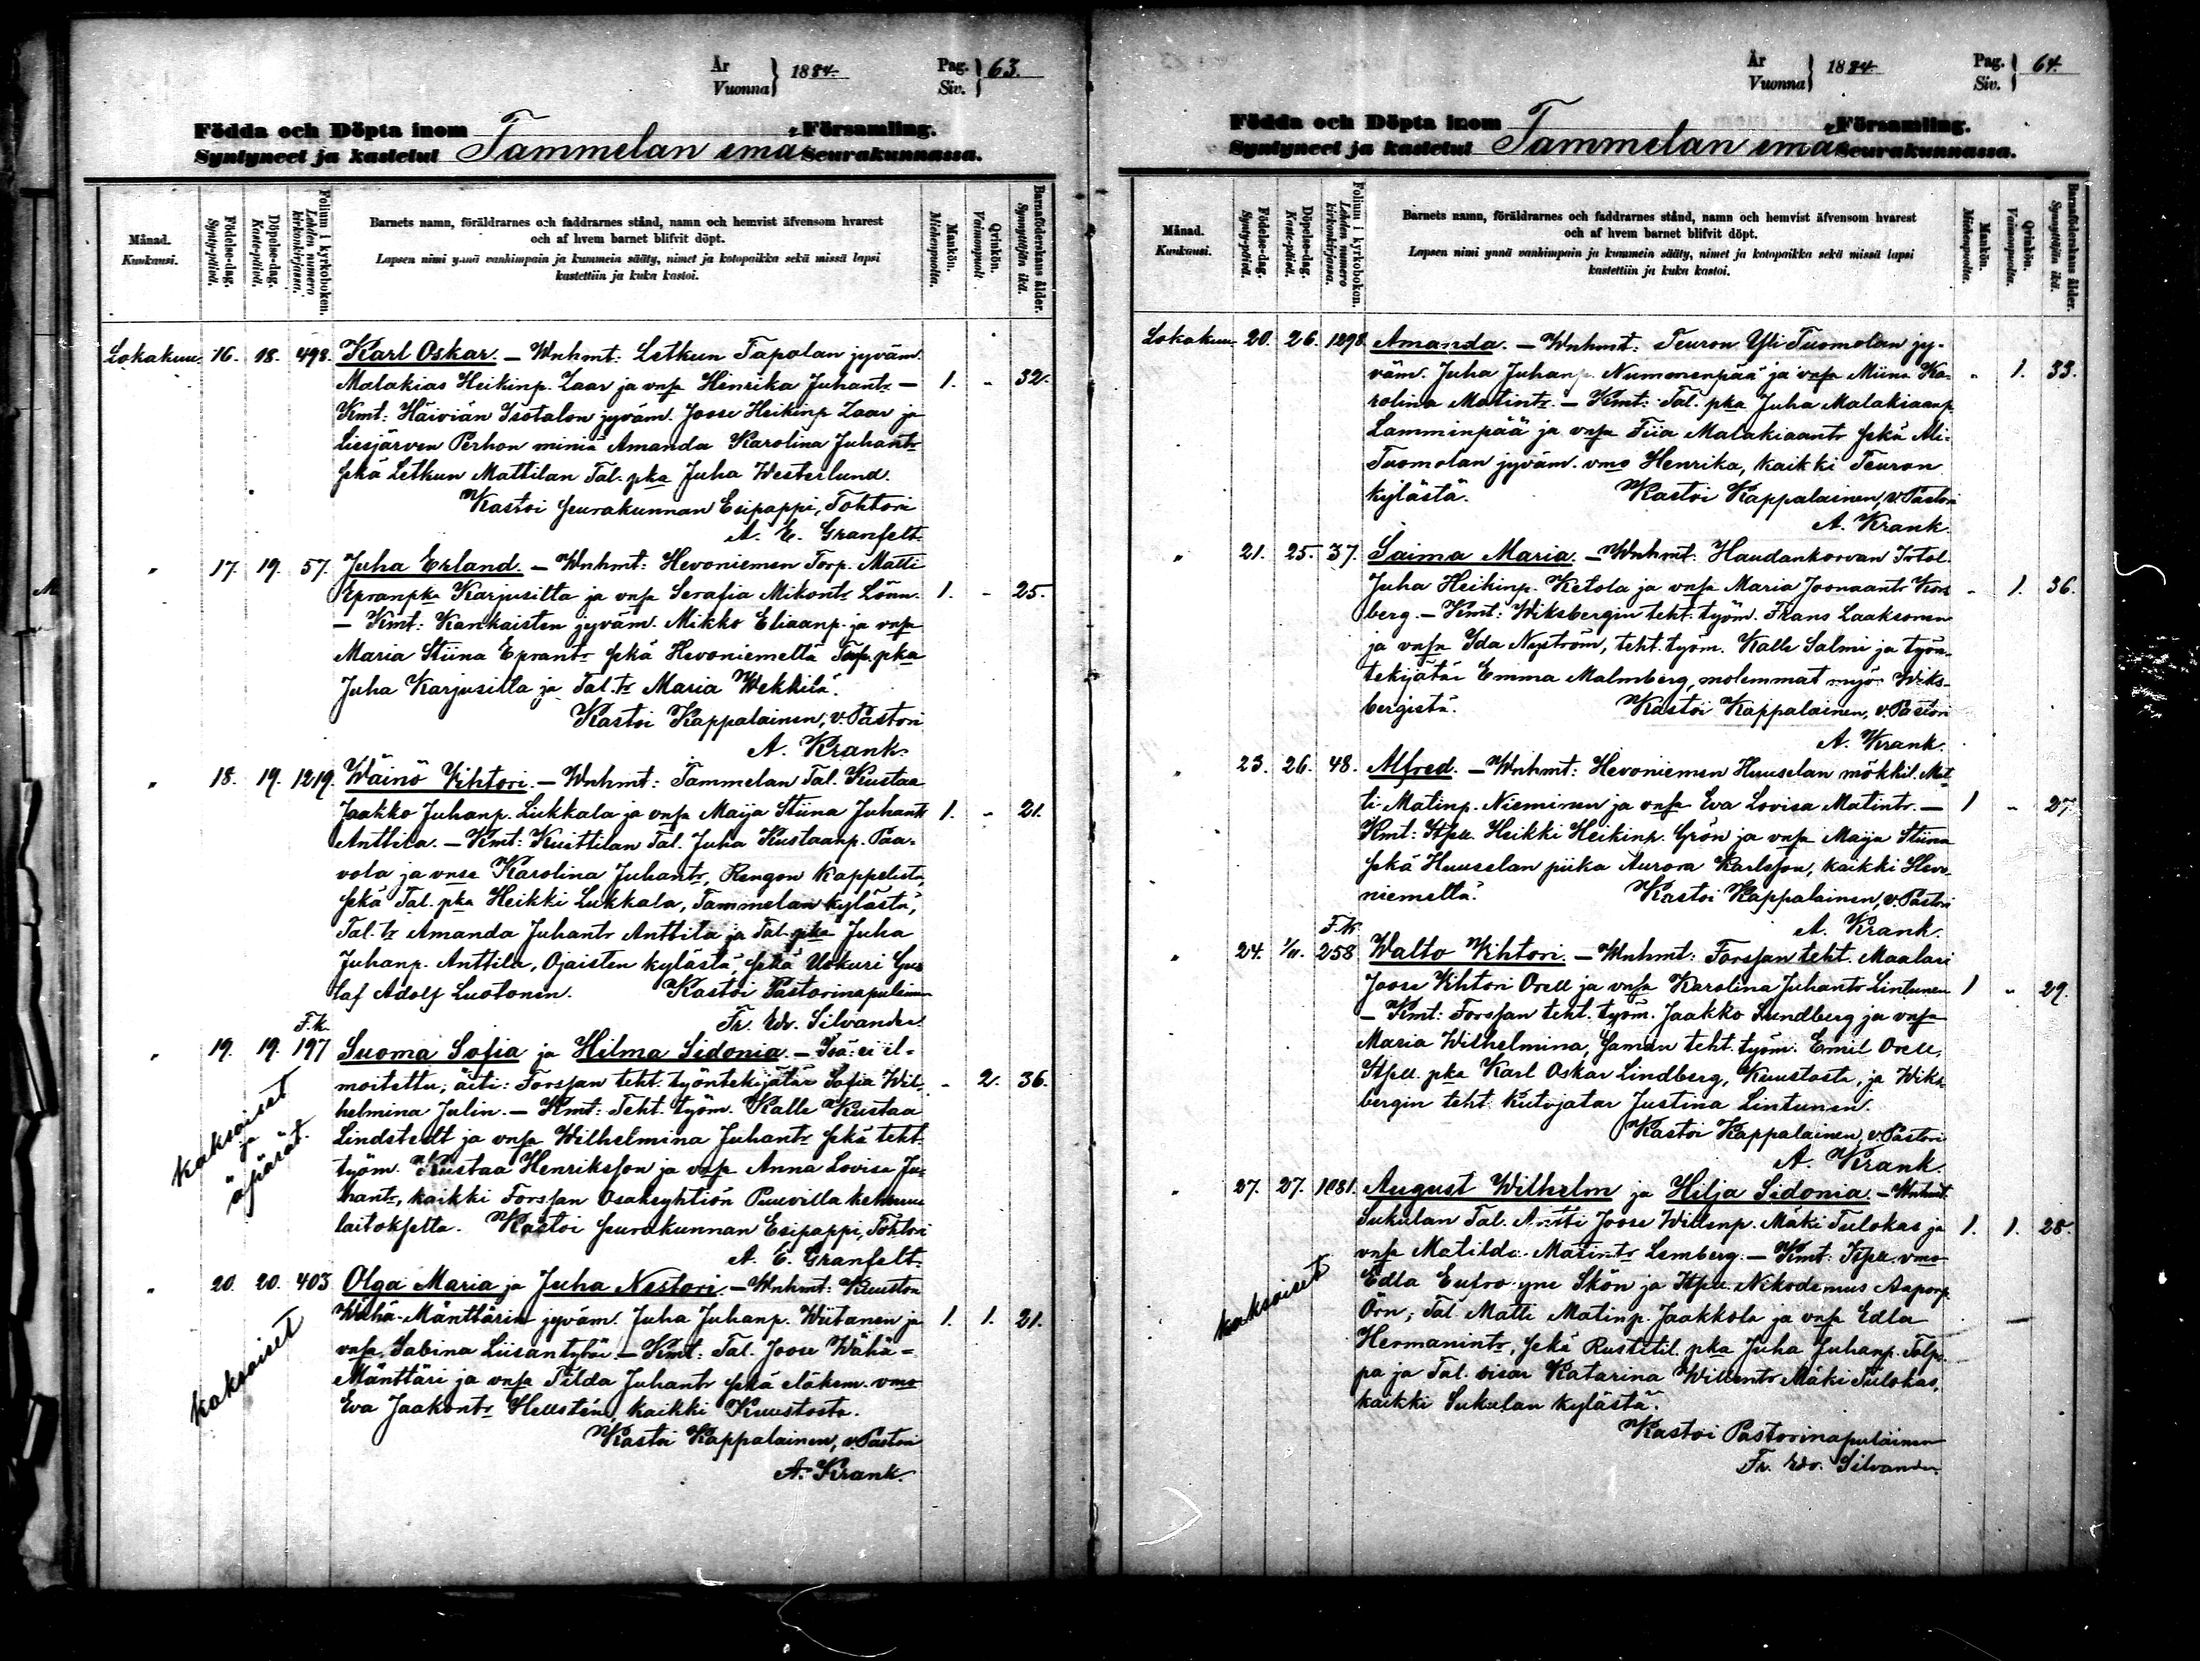 År
Vuonna } 1884. Pag. Siv. } 63.
Födda och Döpta inom Församling.
Syntyneet ja kastetut Tammelan emä Seurakunnassa.
Månad. Kuukausi.
Födelse-dag. Syntypäivä.
Döpelse-dag. Kaste-päivä.
Folium i kyrkoboken. Lehden numero kirkonkirjassa.
Barnets namn, föräldrarnes och faddrarnes stånd, namn och hemvist äfvensom hvarest
och af hvem barnet blifvit döpt.
Lapsen nimi ynnä vanhimpain ja kummein sääty, nimet ja kotopaikka sekä missä lapsi
kastettiin ja kuka kastoi.
Mankön. Miehenpuolta.
Qvinkön. Vaimonpuolta.
Barnaföderskans ålder. Synnyttäjän ikä.
Lokakuu. 16. 18. 498. Karl Oskar. — Wnhmt: Letkun Tapolan jyväm.
Malakias Heikinp. Zaar ja vnsa Henrika Juhantr — 1. " 32.
Kmt: Häiviän Isotalon jyväm. Joose Heikinp Zaar ja
Liesjärven Perhon miniä Amanda Karolina Juhantr
sekä Letkun Mattilan Tal. pka Juha Westerlund.
Kastoi seurakunnan Esipappi, Tohtori
A. E. Granfelt
" 17. 19. 57. Juha Erland. — Wnhmt: Hevoniemen Torp. Matti
Epranpka Karjusilta ja vnsa Serafia Mikontr Lönn. 1. " 25.
— Kmt: Kankaisten jyväm. Mikko Eliaanp. ja vnsa
Maria Stiina Eprantr sekä Hevoniemeltä Torp. pka
Juha Karjusilta ja Tal. tr Maria Wekkilä.
Kastoi Kappalainen, v. Pastori
A. Krank.
" 18. 19. 1219. Wäinö Vihtori. — Wnhmt: Tammelan Tal. Kustaa
Jaakko Juhanp. Lukkala ja vnsa Maija Stiina Juhantr 1. " 21.
Anttila. — Kmt: Kuittilan Tal. Juha Kustaanp. Paa-
vola ja vnsa Karolina Juhantr, Rengon kappelista,
sekä Tal. pka Heikki Lukkala, Tammelan kylästä,
Tal. tr Amanda Juhantr Anttila ja Tal. pka Juha
Juhanp. Anttila, Ojaisten kylästä, sekä Uskuri Gus
taf Adolf Luotonen. Kastoi Pastorinapulainen
Fr. Edv. Silvander.
F.k.
" 19. 19. 197 Suoma Sofia ja Hilma Sidonia. — Isä: ei il-
moitettu, äiti: Forssan teht. työntekijätär Sofia Wil- " 2. 36.
helmina Julin. — Kmt: Teht. työm. Kalle Kustaa
Lindstedt ja vnsa Wilhelmina Juhantr sekä teht.
työm. Kustaa Henriksson ja vnsa Anna Lovisa Ju-
hantr, kaikki Forssan Osakeyhtiön Puuvilla kehruu
laitokselta. Kastoi seurakunnan Esipappi, Tohtori
A. E. Granfelt.
kaksoiset
ja
äpärät.
" 20. 20. 403 Olga Maria ja Juha Nestori. — Wnhmt: Kuuston
Wähä-Mänttärin jyväm. Juha Juhanp. Wiitanen ja 1. 1. 21.
vnsa Sabina Liisantytär. — Kmt: Tal. Joose Wähä-
Mänttäri ja vnsa Tilda Juhantr sekä eläkem. vmo
Eva Jaakontr Hellstén, kaikki Kuustosta.
Kastoi Kappalainen, v. Pastori
A. Krank.
kaksoiset
År
Vuonna } 1884. Pag. Siv. } 64.
Födda och Döpta inom Församling.
Syntyneet ja kastetut Tammelan emä Seurakunnassa.
Månad. Kuukausi.
Födelse-dag. Syntypäivä.
Döpelse-dag. Kaste-päivä.
Folium i kyrkoboken. Lehden numero kirkonkirjassa.
Barnets namn, föräldrarnes och faddrarnes stånd, namn och hemvist äfvensom hvarest
och af hvem barnet blifvit döpt.
Lapsen nimi ynnä vanhimpain ja kummein sääty, nimet ja kotopaikka sekä missä lapsi
kastettiin ja kuka kastoi.
Mankön. Miehenpuolta.
Qvinkön. Vaimonpuolta.
Barnaföderskans ålder. Synnyttäjän ikä.
Lokakuu 20. 26. 1298. Amanda. — Wnhmt: Teuron Yli Tuomolan jy-
väm. Juha Juhanp. Nummenpää ja vnsa Miina Ka- " 1. 33.
rolina Matintr. — Kmt: Tal. pka Juha Malakiaanp
Lamminpää ja vnsa Tiia Malakiaantr sekä Ali-
Tuomolan jyväm. vmo Henrika, kaikki Teuron
kylästä. Kastoi Kappalainen, v. Pastori
A. Krank.
" 21. 25. 37. Saima Maria. — Wnhmt: Haudankorvan Irtol.
Juha Heikinp. Ketola ja vnsa Maria Joonaantr Kors " 1. 36.
berg. — Kmt: Wiksbergin teht. työm. Frans Laaksonen
ja vnsa Ida Nyström, teht. työm. Kalle Salmi ja työn-
tekijätär Emma Malmberg, molemmat myö Wiks-
bergistä. Kastoi Kappalainen, v. Pastori
A. Krank.
" 23. 26. 48. Alfred. — Wnhmt: Hevoniemen Huuselan mökkil. Mat
ti Matinp. Nieminen ja vnsa Eva Lovisa Matintr. — 1 " 27
Kmt: Itsell. Heikki Heikinp. Grön ja vnsa Maija Stiina
sekä Huuselan piika Aurora Karlsson, kaikki Hevo-
niemeltä. Kastoi Kappalainen, v. Pastori
A. Krank.
F.k.
" 24. 1/11. 258 Walto Vihtori. — Wnhmt: Forssan teht. Maalari
Joose Vihtori Orell ja vnsa Karolina Juhantr Lintunen 1 " 29.
— Kmt: Forssan teht. työm. Jaakko Sundberg ja vnsa
Maria Wilhelmina, saman teht. työm. Emil Orell,
Itsell. pka Karl Oskar Lindberg, Kuustosta, ja Wiks-
bergin teht. Kutojatar Justina Lintunen.
Kastoi Kappalainen, v. Pastori
A. Krank.
" 27. 27. 1081. August Wilhelm ja Hilja Sidonia. — Wnhmt.
Sukulan Tal. Antti Joose Willenp. Mäki Tulokas ja 1. 1. 28.
vnsa Matilda Matintr Lemberg. — Kmt: Itsell. vmo
Edla Eufrosyne Skön ja Itsell. Nikodemus Aaponp
Örn, Tal. Matti Matinp. Jaakkola ja vnsa Edla
Hermanintr, sekä Rustitil. pka Juha Juhanp. Tolp-
pa ja Tal. sisar Katarina Willentr Mäki Tulokas,
kaikki Sukulan kylästä.
Kastoi Pastorinapulainen
Fr. Edv. Silvander.
kaksoiset